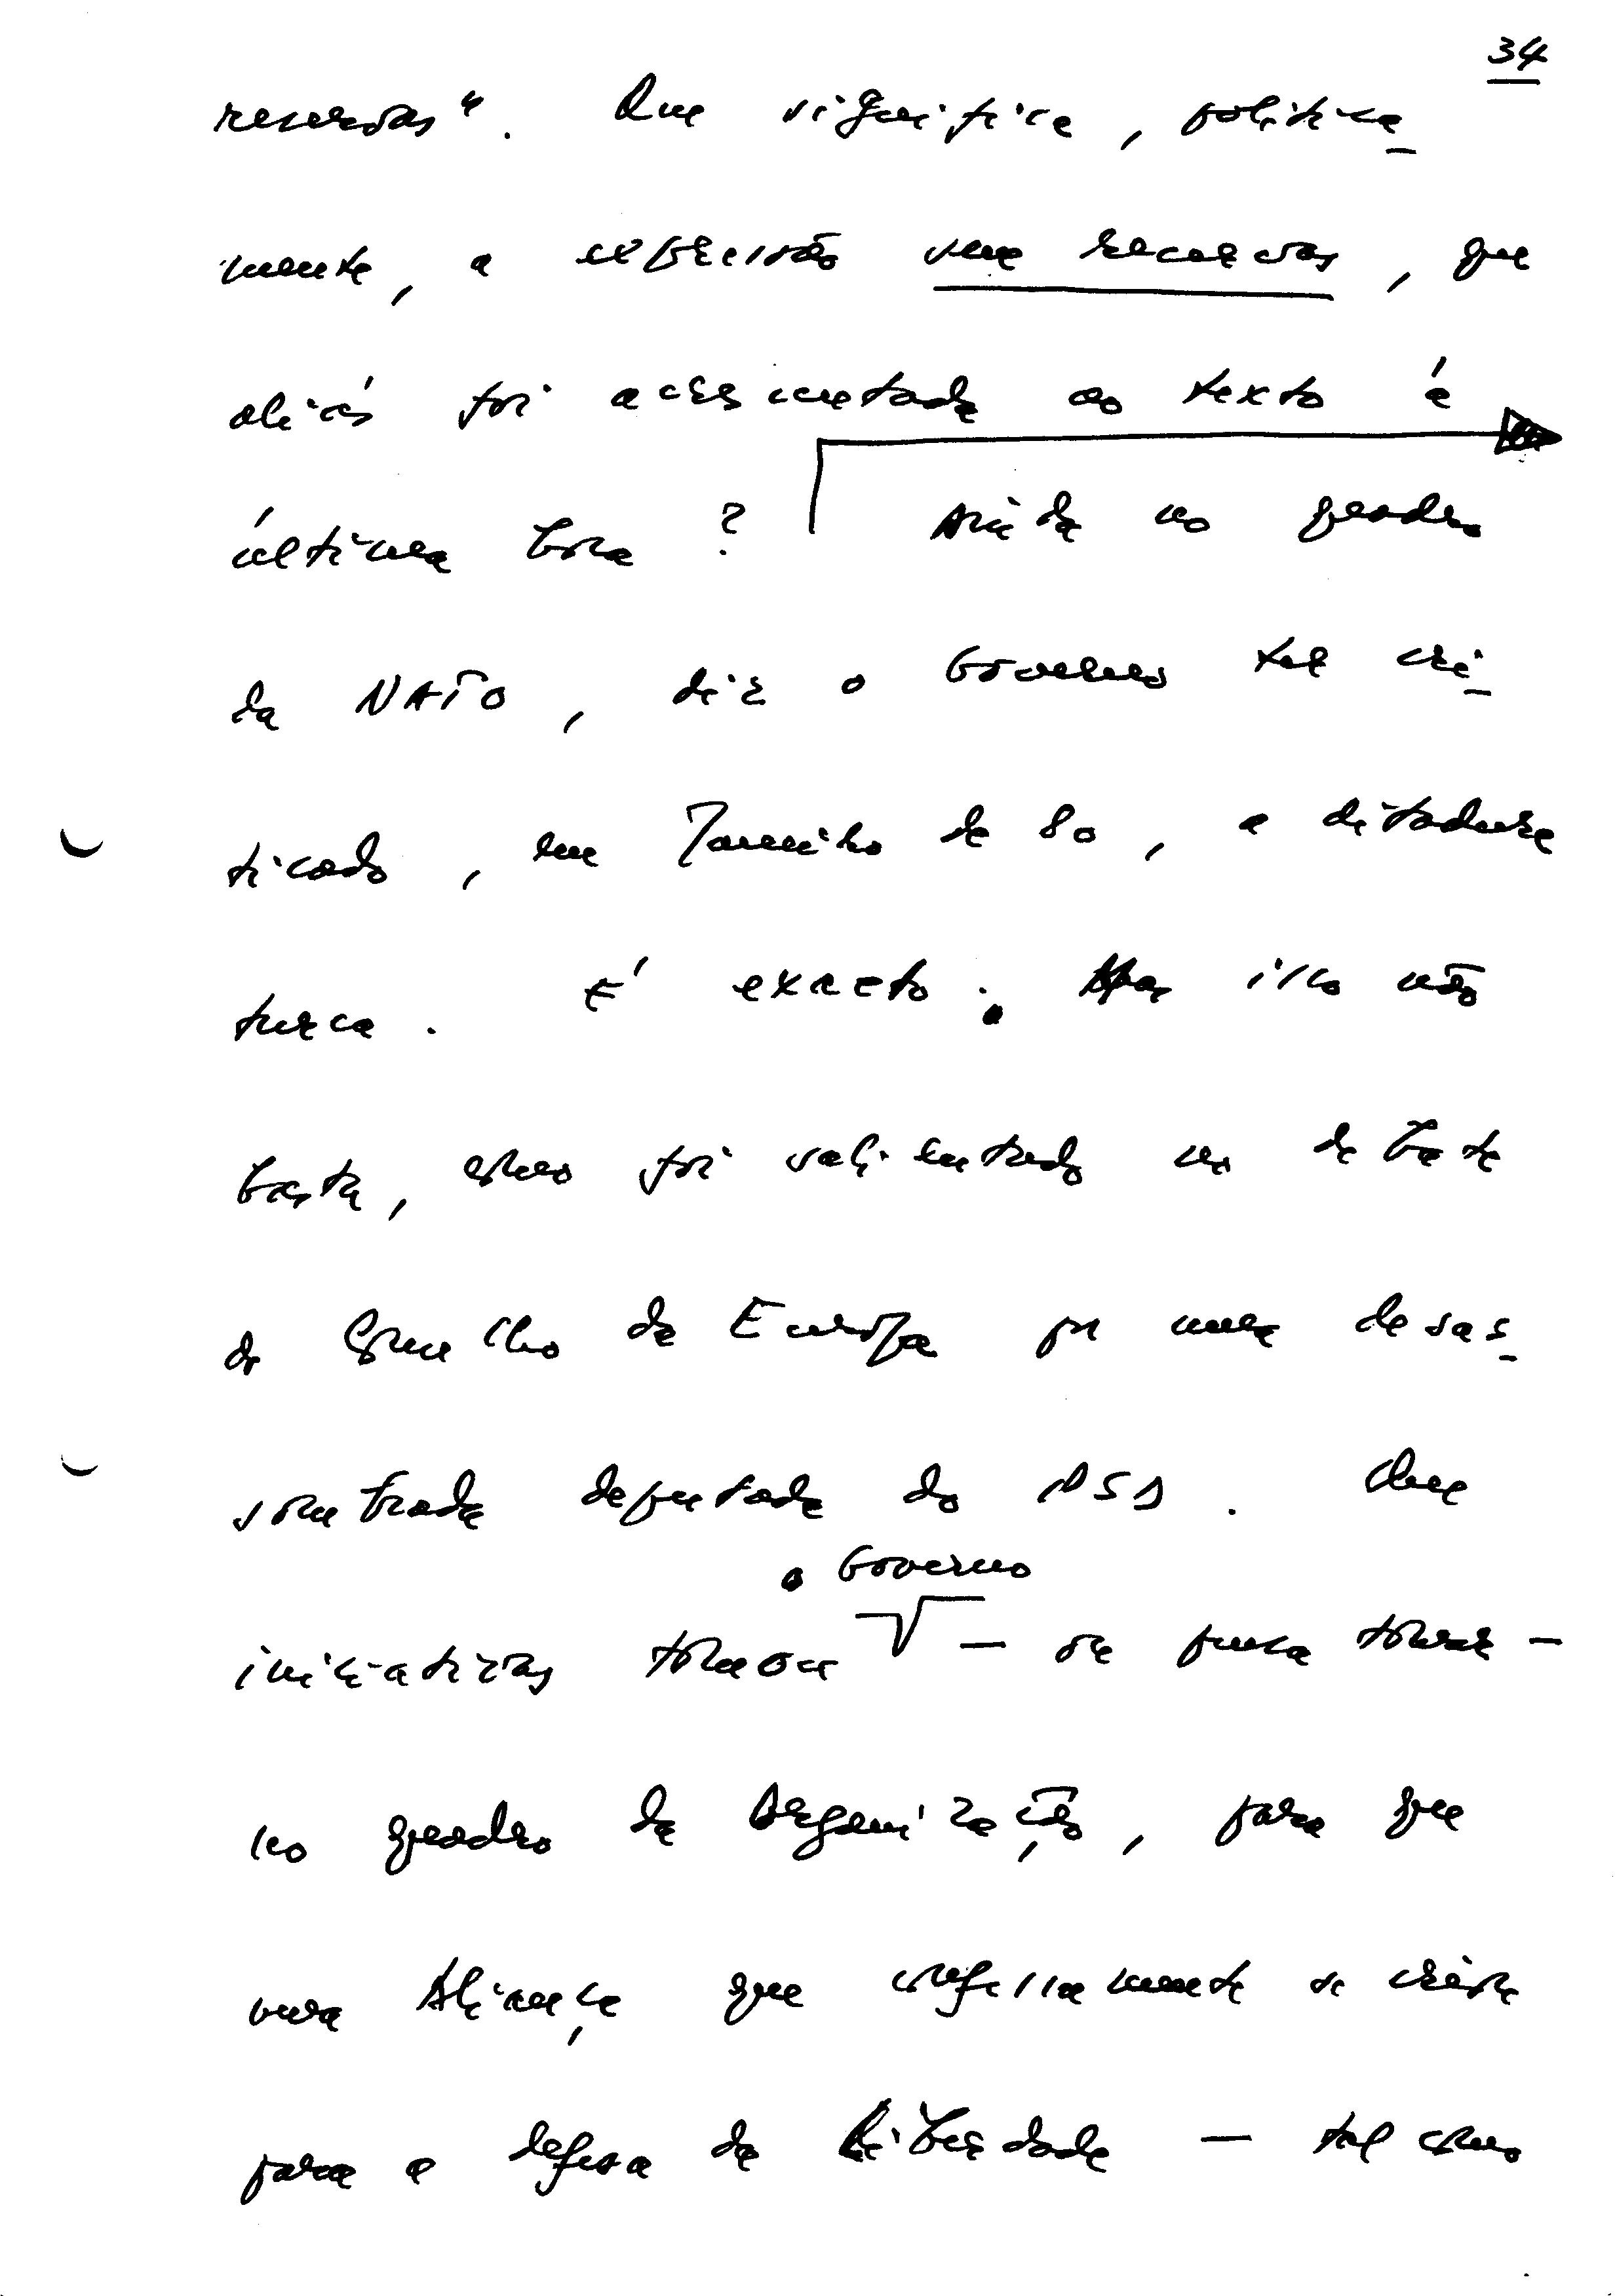 34
reservas". Que significa, politica_
mente, a expressão sem reservas, que
aliás foi acrescentada ao texto à
última hora? Ainda no quadro
da NATO, diz o Governo ter cri_
ticado, em Janeiro de 80, a ditadura
turca. É exacto. Mas isso não
basta, como foi salientado no debate
do Conselho da Europa por uma desas_
sombrada deputada do PSD. Que
o Governo
iniciativas tomou — ou pensa tomar —
no quadro da Organização, para que
numa Aliança que confessadamente se criou
para a defesa da Liberdade — tal como